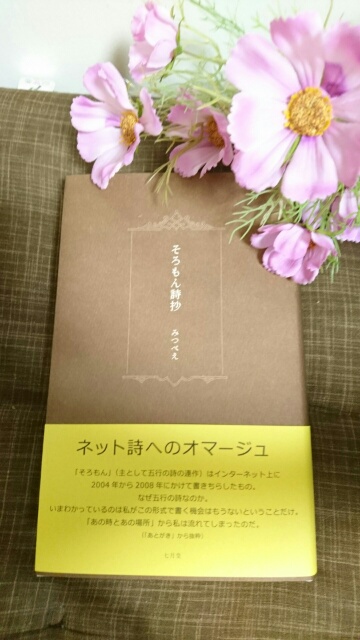 そろもん詩抄
みつべえ
ネット詩へのオマージュ
「そろもん」（主として五行の詩の連作）はインターネット上に
2004年から2008年にかけて書きちらしたもの。
なぜ五行の詩なのか。
いまわかっているのは私がこの形式で書く機会はもうないということだけ。
「あの時とあの場所」から私は流れてしまったのだ。
（「あとがき」から抜粋）
七月堂